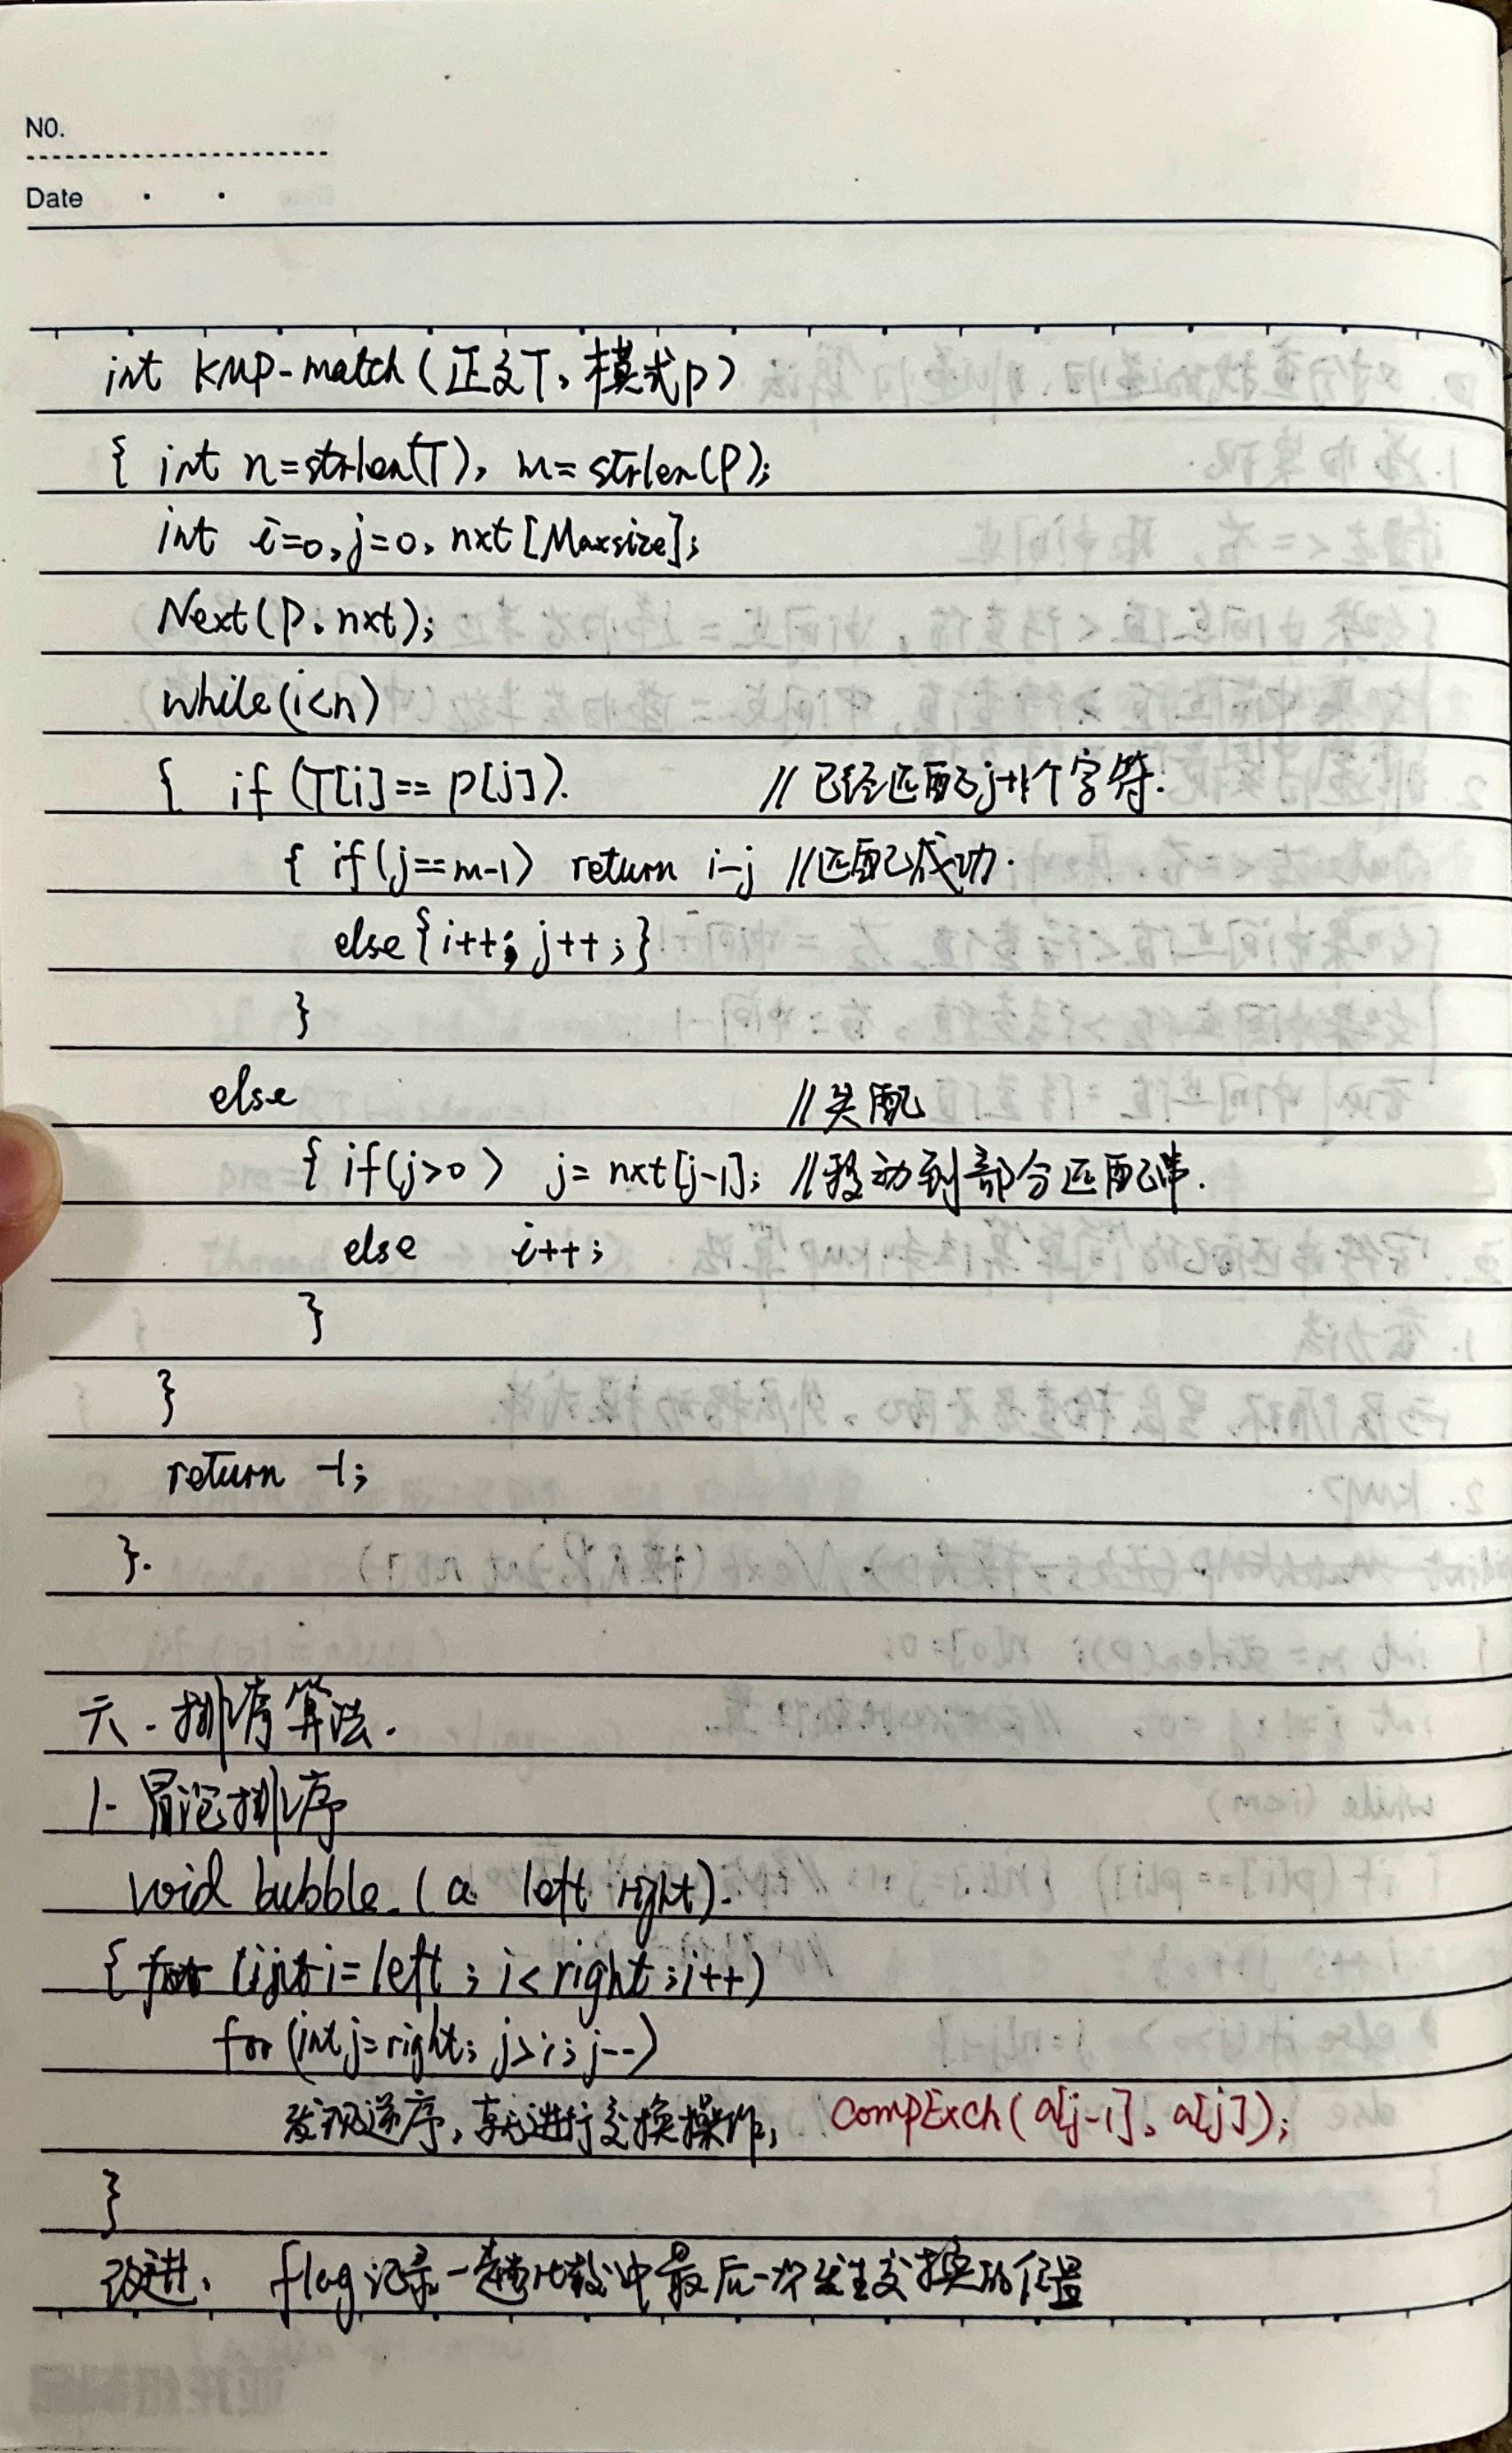 NO.
Date
int KMP-match(正文T，模式P)
{ int n=strlen(T), m=strlen(P);
int i=0, j=0, nxt[Maxsize];
Next(P, nxt);
while(i<n)
{ if (T[i]==P[j]). //已经匹配了j+1个字符.
{ if(j==m-1) return i-j //匹配成功.
else{i++; j++;}
}
else //失配
{ if(j>0) j=nxt[j-1]; //移动到部分匹配串.
else i++;
}
}
return -1;
}.
六. 排序算法.
1. 冒泡排序
void bubble (a left right).
{ for (int i=left; i<right; i++)
for (int j=right; j>i; j--)
发现逆序，就进行交换操作; compExch(a[j-1], a[j]);
}
改进. flag记录一趟比较中最后一次发生交换的位置